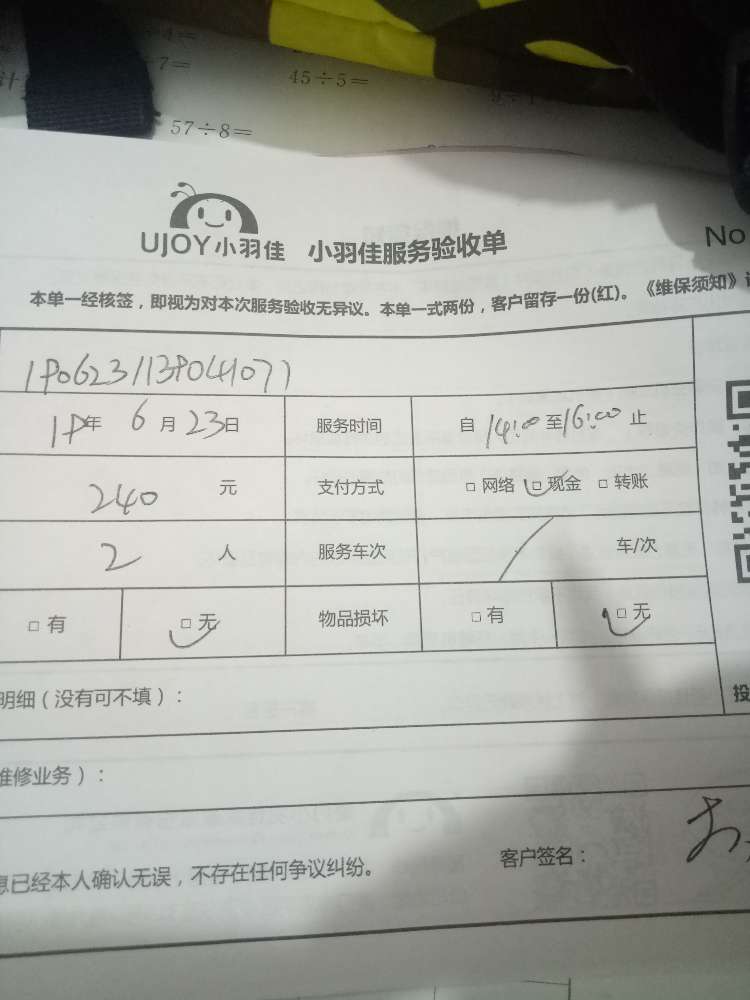 45÷5=
57÷8=
UJOY小羽佳 小羽佳服务验收单 No
本单一经核签，即视为对本次服务验收无异议。本单一式两份，客户留存一份(红)。《维保须知》
18年 6月23日 服务时间 自 14:00 至 16:00 止
240 元 支付方式 □ 网络 □ 现金 □ 转账
2 人 服务车次 / 车/次
□ 有 □ 无 物品损坏 □ 有 □ 无
明细（没有可不填）： 投
维修业务）：
息已经本人确认无误，不存在任何争议纠纷。 客户签名：